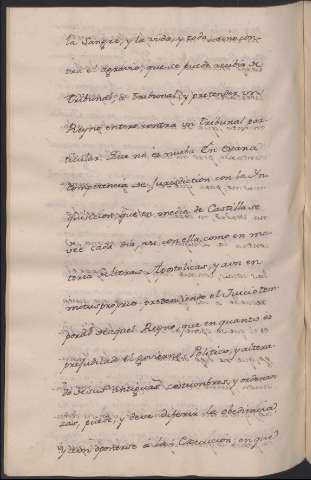 la Sangre, y la vida, y todo
tra el agravio, que se puede recibir de
Tribunal, à Tribunal, y pretender un
Reyno entero contra un Tribunal par-
ticular. Que no es nueba en España
Competencia de Jurisdiccion con la In-
quisicion, que en media de Castilla se
vee cada dia, no con ella, como en ma-
teria de letras Apostolicas, y aun en
motus proprios
por de aquel Reyno, que en quanto es
prejudicial el govierno Politico, y altera-
de sus antiguas costumbres, y ordenan-
zas, puede, y deve diferir la obediencia
y aun oponerse à la Execucion; en que